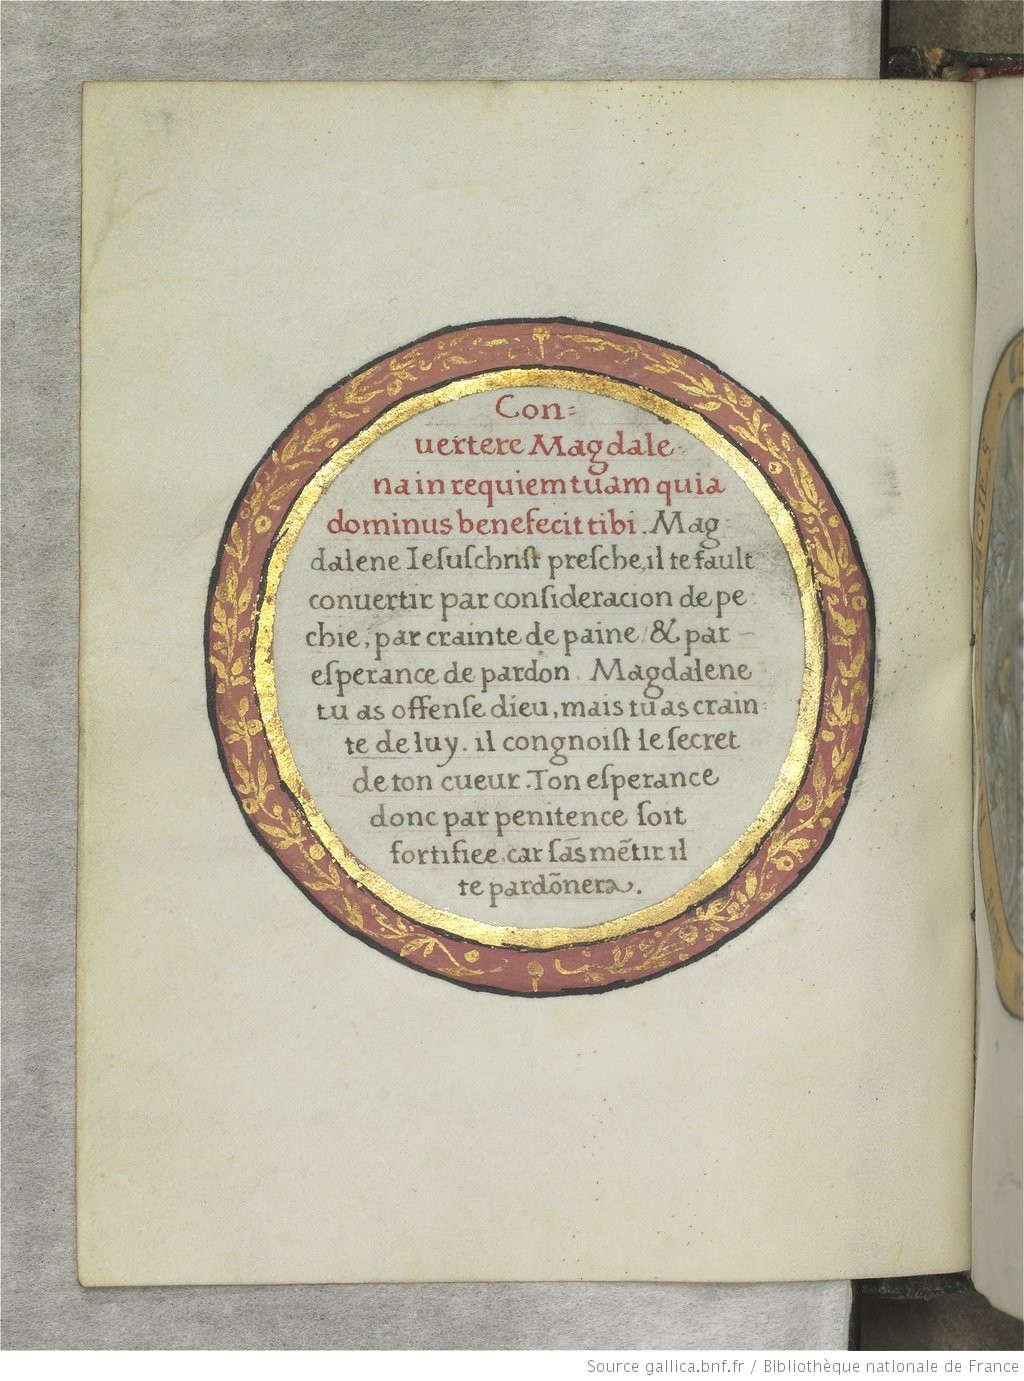 Con=
uertere Magdale
na in requiem tuam quia
dominus benefecit tibi. Mag
dalene Iesuſchriſt preſche, il te fault
conuertir par conſideracion de pe
chie, par crainte de paine / & par
eſperance de pardon. Magdalene
tu as offenſe dieu, mais tu as crain
te de luy. il congnoiſt le ſecret
de ton cueur. Ton eſperance
donc par penitence ſoit
fortifiee. car ſãs mẽtir il
te pardõnera.
Source gallica.bnf.fr / Bibliothèque nationale de France